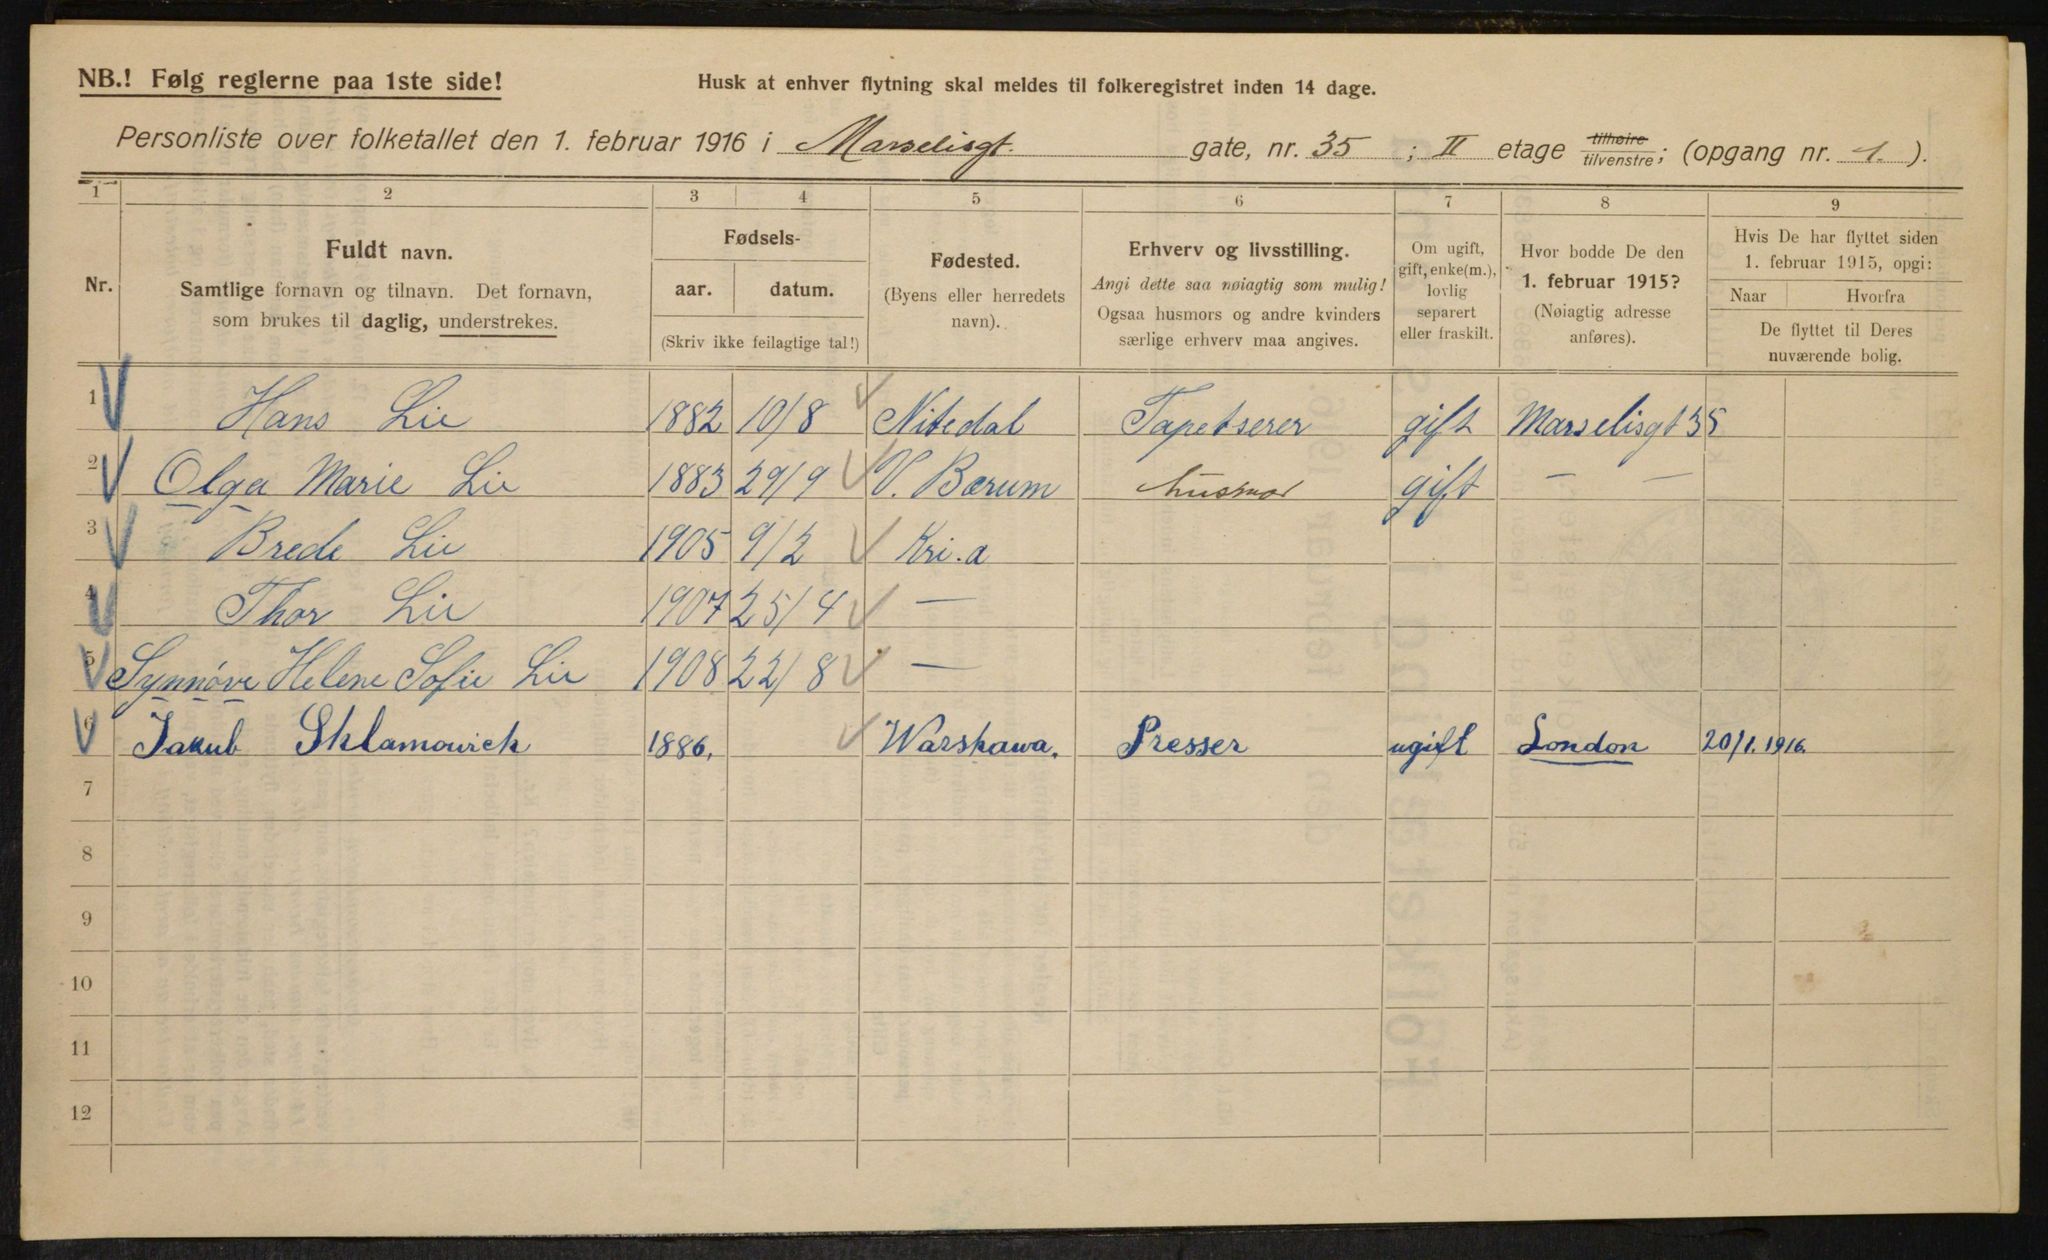 NB.! Følg reglerne paa 1ste side!
Husk at enhver flytning skal meldes til folkeregistret inden 14 dage.
Personliste over folketallet den 1. februar 1916 i Marselisgt. gate, nr. 35 ; II etage tilhøire/tilvenstre; (opgang nr. 1. ).
1 2 3 4 5 6 7 8 9
Nr.
Fuldt navn.
Samtlige fornavn og tilnavn. Det fornavn,
som brukes til daglig, understrekes.
Fødsels-
aar. datum.
(Skriv ikke feilagtige tal!)
Fødested.
(Byens eller herredets
navn).
Erhverv og livsstilling.
Angi dette saa nøiagtig som mulig!
Ogsaa husmors og andre kvinders
særlige erhverv maa angives.
Om ugift,
gift, enke(m.),
lovlig
separert
eller fraskilt.
Hvor bodde De den
1. februar 1915?
(Nøiagtig adresse
anføres).
Hvis De har flyttet siden
1. februar 1915, opgi:
Naar Hvorfra
De flyttet til Deres
nuværende bolig.
1 Hans Lie 1882 10/8 Nitedal Tapetserer gift Marselisgt 35
2 Olga Marie Lie 1883 29/9 V. Bærum husmor gift — —
3 Brede Lie 1905 9/2 Kri.a
4 Thor Lie 1907 25/4 —
5 Synnøve Helene Sofie Lie 1908 22/8 —
6 Jakub Sklamowick 1886. Warskawa. Presser ugift London 20/1. 1916.
7
8
9
10
11
12